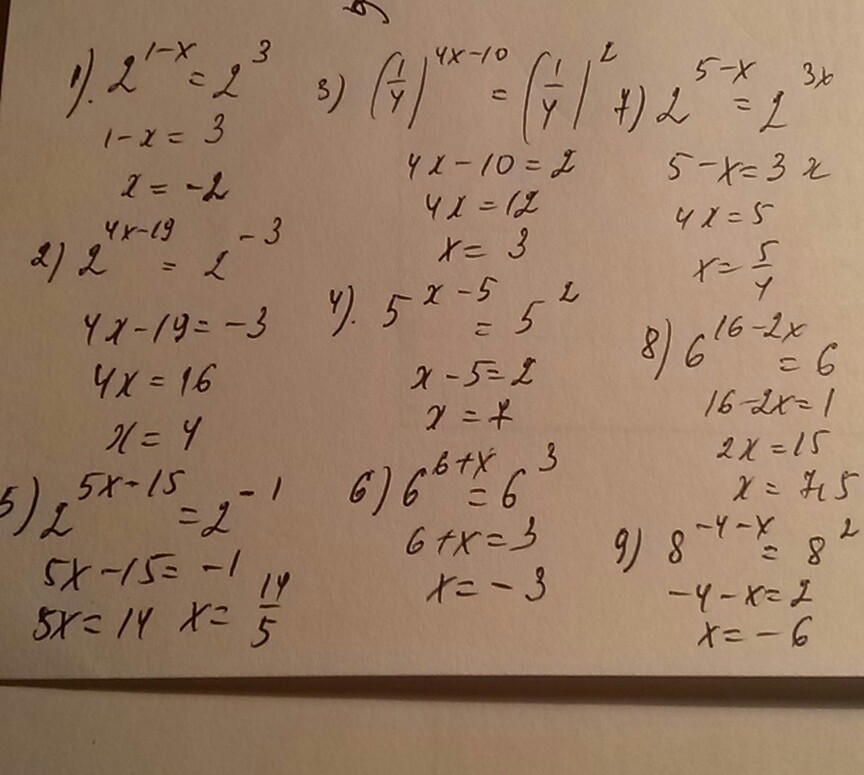 1). 2^{1-x} = 2^3
1-x = 3
x = -2
2) 2^{4x-19} = 2^{-3}
4x-19 = -3
4x = 16
x = 4
3) (1/4)^{4x-10} = (1/4)^2
4x-10 = 2
4x = 12
x = 3
4). 5^{x-5} = 5^2
x-5 = 2
x = 7
5) 2^{5x-15} = 2^{-1}
5x-15 = -1
5x = 14 x = 14/5
6) 6^{6+x} = 6^3
6+x = 3
x = -3
7) 2^{5-x} = 2^{3x}
5-x = 3x
4x = 5
x = 5/4
8) 6^{16-2x} = 6
16-2x = 1
2x = 15
x = 7,5
9) 8^{-4-x} = 8^2
-4-x = 2
x = -6